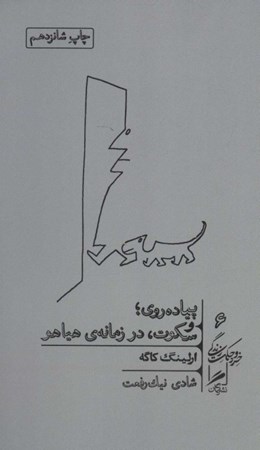 چاپ شانزدهم
پیاده‌روی؛
و
سکوت، در زمانه‌ی هیاهو
ارلینگ کاگه
شادی نیک‌رفعت
۶
خرد و حکمت زندگی
نشر گمان